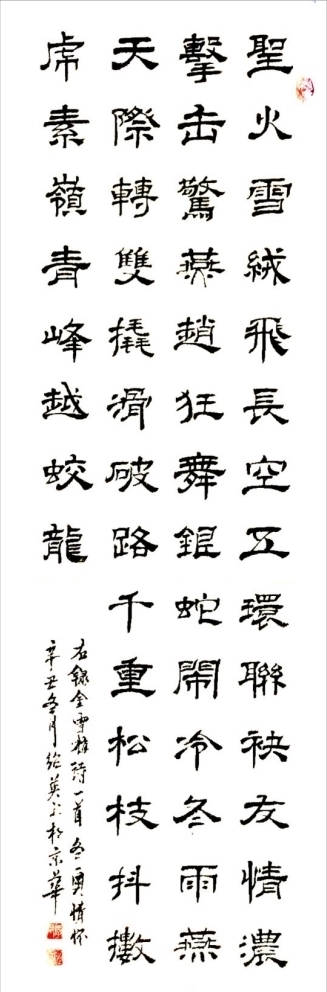 聖火雪絨飛長空五環聯袂友情濃
擊缶驚燕趙狂舞銀蛇鬧冷冬雨燕
天際轉雙撬滑破路千重松枝抖擻
虎素嶺青峰越蛟龍
右錄金雪梅詩一首冬奧情怀
辛丑冬月 英書於京華